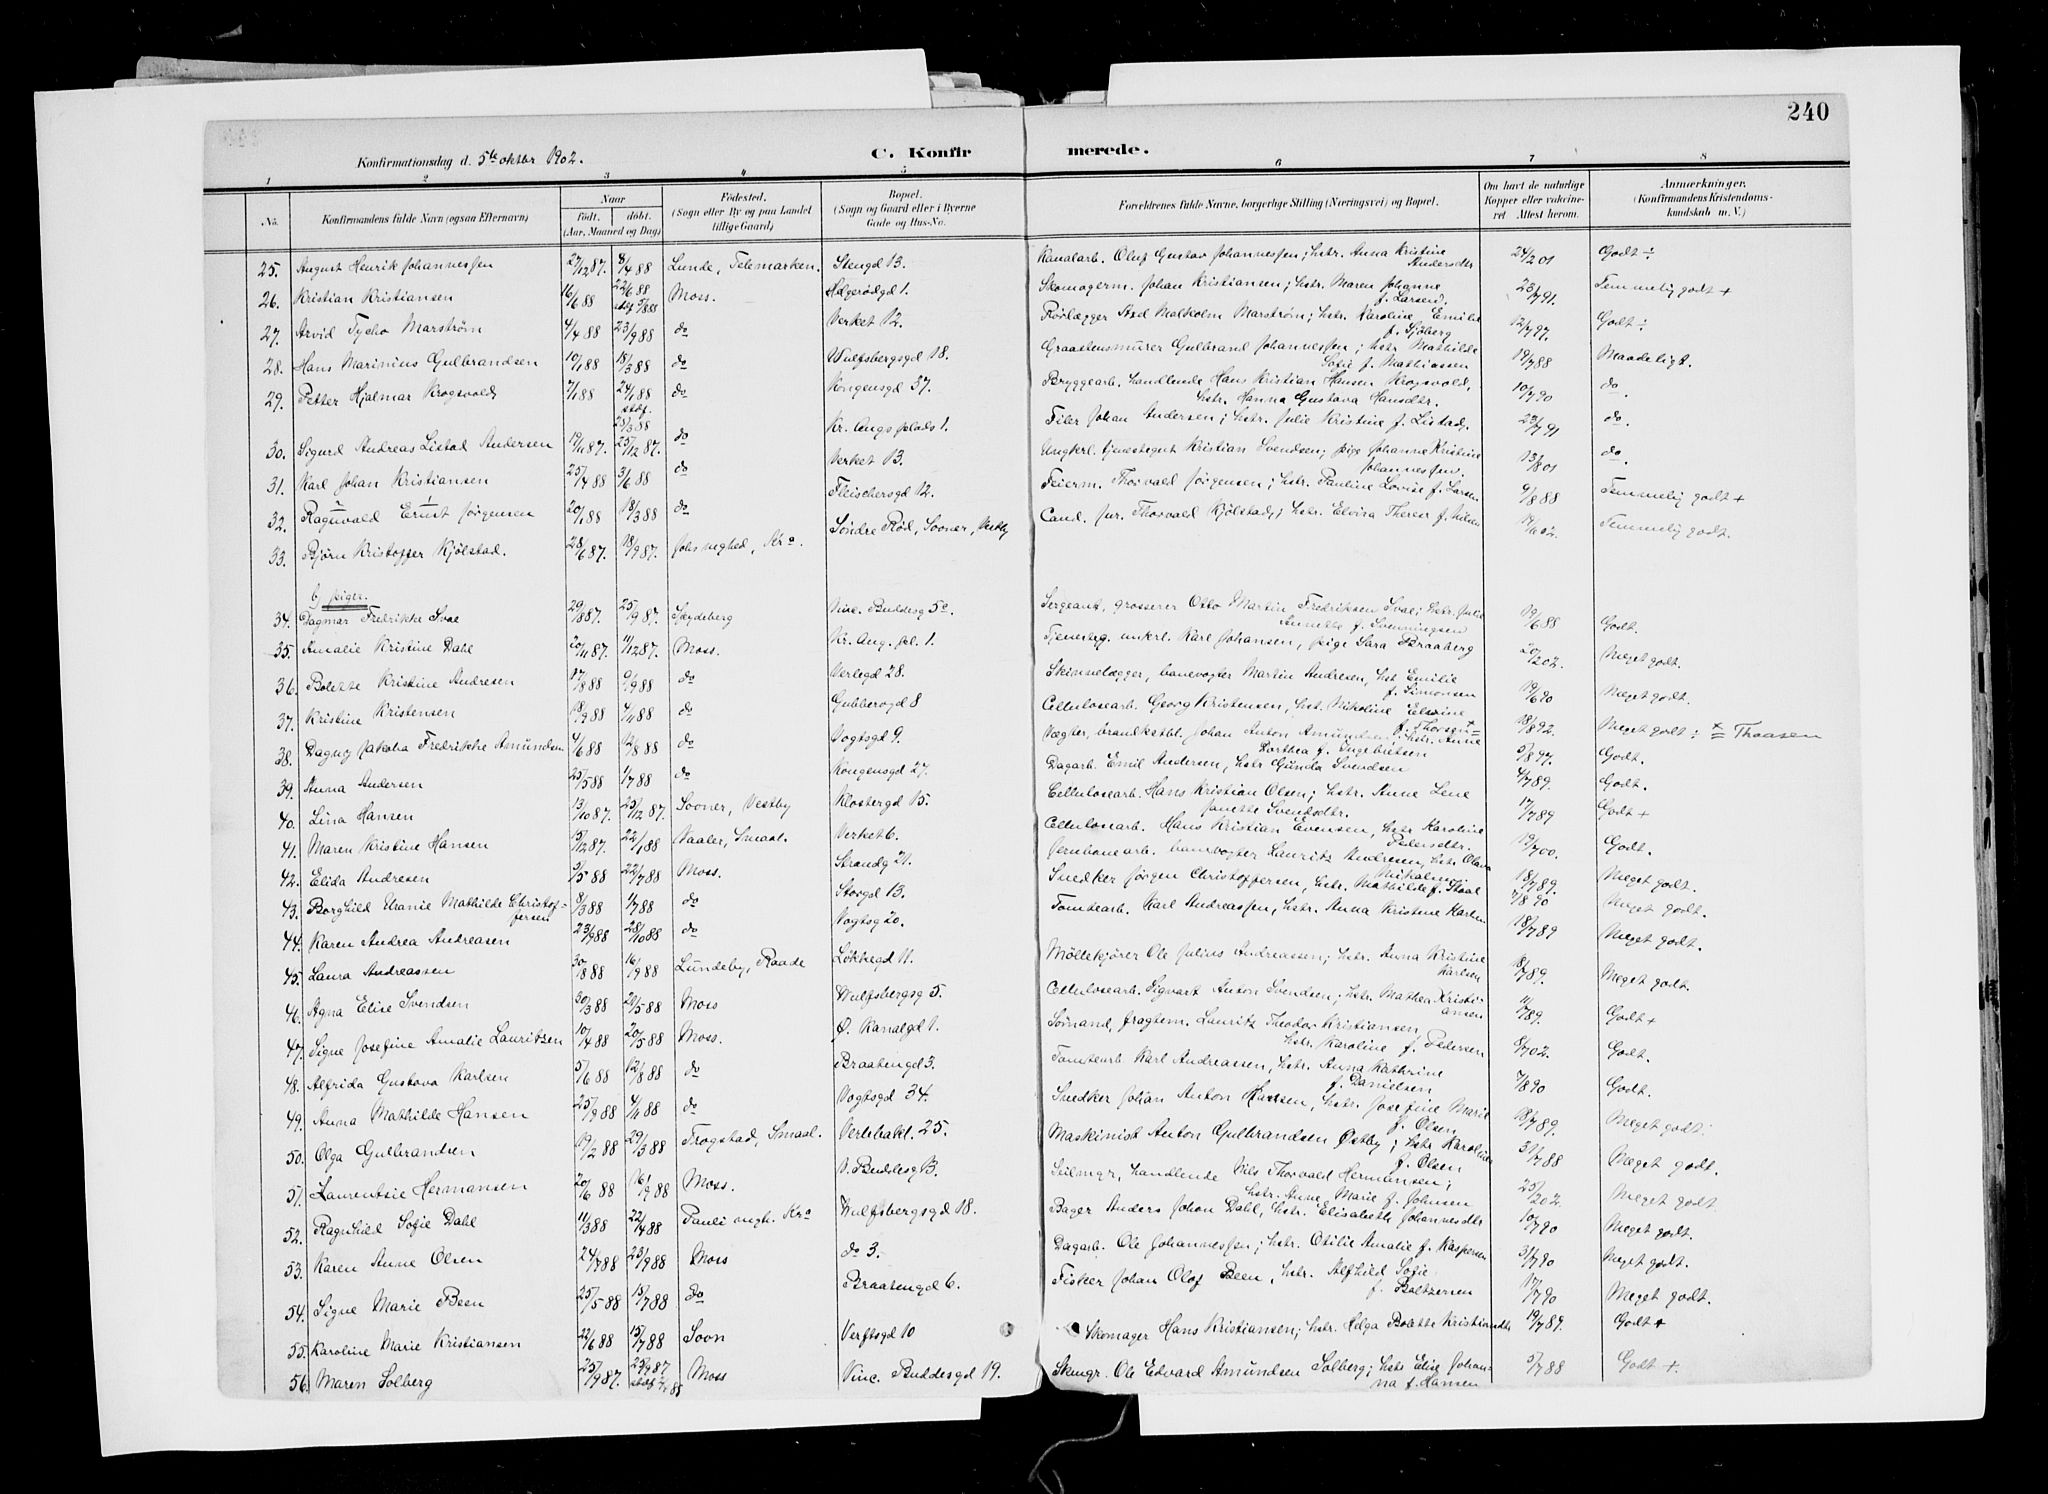 240
Konfirmationsdag d. 5te oktbr 1902.
C. Konfirmerede.
1 2 3 4 5 6 7 8
No.
Konfirmandens fulde Navn (ogsaa Efternavn)
Naar
Født.
døbt.
(Aar, Maaned og Dag)
Fødested.
(Sogn eller By og paa Landet tillige Gaard)
Bopæl.
(Sogn og Gaard eller i Byerne Gade og Hus-No.
Forældrenes fulde Navne, borgerlige Stilling (Næringsvei) og Bopæl.
Om havt de naturlige Kopper eller vakcineret Attest herom.
Anmærkninger.
(Konfirmandens Kristendomskundskab m. V.)
25. August Henrik Johannessen 27/12 87. 8/4 88 Lunde, Telemarken. Stengd 13. Kanalarb. Oluf Gustav Johannessen; hstr. Anna Kristine Andersdtr 24/2 01 Godt ÷
26. Kristian Kristiansen 16/6 88 22/6 88 Moss. Helgerødgd 1. Skomagerm. Johan Kristiansen; hstr. Maren Johanne f. Larsen. 23/7 91. Temmelig godt +
27. Arvid Tycho Marstrøm 4/4 88 23/9 88 do Verket 12. Rørlægger Axel Malkolm Marstrøm; hstr. Karoline Emilie f. Sjöberg 12/7 97. Godt ÷
28. Hans Marinius Gulbrandsen 10/1 88 18/3 88 do Wulfsbergsgd 18. Graastensmurer Gulbrand Johannessen; hstr Mathilde Sofie f. Mathiassen 19/7 88 Maadeligt.
29. Petter Hjalmar Krogsvold 7/1 88 24/1 88 stdf. 25/3 88 do Kongensgd 37. Bryggearb. handlende Hans Kristian Hansen Krogsvold, hstr. Hanna Gustava Hansdtr. 10/7 90 do.
30. Sigurd Andreas Listad Andersen 19/11 87. 25/12 87. do Kr. Augs plads 1. Filer Johan Andersen; hstr. Julie Kristine f. Listad, 23/7 91 do.
31. Karl Johan Kristiansen 25/4 88 3/6 88 do Verket 13. Ungkrl. tjenestegut Kristian Svendsen; pige Johanne Kristine Johannessen. 13/8 01 do.
32. Ragnvald Ernst Jørgensen 20/1 88 18/3 88 do Fleischersgd 12. Feierm. Thorvald Jørgensen; hstr. Pauline Lovise f. Larsen 9/8 88 Temmelig godt +
33. Bjørn Kristoffer Kjølstad. 28/6 87. 18/9 87. Johs meghed, Kra. Søndre Rød, Sooner, Vestby Cand. jur. Thorvald Kjølstad; hstr. Elvira Therese f. Nilsen Temmelig godt.
b) piger.
34. Dagmar Fredrikke Svae 29/8 87. 25/9 87. Spydeberg Vinc. Buddesg 5c. Sergeant, grosserer Otto Martin Fredriksen Svae; hstr. Julie Annette f. Svenningsen 19/6 88 Godt.
35. Amalie Kristine Dahl 20/11 87. 11/12 87. Moss. Kr. Aug. pl. 1. Tjenesteg. unkrl. Karl Johansen, pige Sara Braaberg 20/2 02. Meget godt.
36. Bolette Kristine Andresen 17/8 88 9/9 88 do Verlegd 28. Skinnelægger, banevogter Martin Andresen, hst Emilie f. Simonsen 19/6 90 Meget godt.
37. Kristine Kristensen 18/9 88 4/11 88 do Gubberogd 8 Cellulosearb. Georg Kristensen, hst. Nikoline Elvine f. Thorsen + 18/8 92. Meget godt : + = Thoasen
38. Dagny Jakoba Fredrikke Amundsen 4/6 88 12/8 88 do Vogtsgd 9. Vægter, brandkstbl. Johan Anton Amundsen; hstr. Anne Dorthea f. Ingebretsen 5/8 97. Godt.
39. Anna Andersen 25/5 88 1/7 88 do Kongensgd 27. Dagarb. Emil Andersen, hstr Gunda Svendsen 4/7 89. Godt.
40. Lina Hansen 13/10 87. 25/12 87. Sooner, Vestby Klostergd 15. Cellulosearb. Hans Kristian Olsen; hstr. Anne Lene Janette Svendsdtr. 17/7 89 Godt +
41. Maren Kristine Hansen 15/12 87. 22/1 88 Vaaler, Smaal. Verket 6. Cellulosearb. Hans Kristian Evensen, hstr Karoline Pedersdtr. 19/7 00. Godt.
42. Elida Andresen 5/5 88 22/7 88 Moss. Strandg 21. Jernbanearb. banevogter Lauritz Andresen, hstr. Olava Mikalsen 18/7 89. Meget godt.
43. Borghild Uranie Mathilde Christoffersen 8/3 88 1/7 88 do Storgd 13. Snedker Jørgen Christoffersen, hstr. Mathilde f. Staal 7/8 90 Meget godt.
44. Karen Andrea Andreasen 23/9 88 28/10 88 do Vogtsg 20. Tomtearb. Karl Andreassen, hstr. Anna Kristine Karlsen 18/7 89 Meget godt.
45. Laura Andreassen 30/8 88 16/9 88 Lundeby, Raade Løkkegd 11. Møllekjører Ole Julius Andreassen; hstr. Anna Kristine Karlsen 18/7 89. Meget godt.
46. Agna Elise Svendsen 30/3 88 21/5 88 Moss Wulfsbergsg 5. Cellulosearb. Sigvart Anton Svendsen; hstr. Mathea Kristiansen 11/7 89. Godt +
47. Signe Josefine Amalie Lauritzen 10/4 88 20/5 88 Moss. Ø. Kanalgd 1. Sømand, fragtem. Lauritz Theodor Kristiansen, hstr. Karoline f. Pedersen 8/7 02. Godt.
48. Alfrida Gustava Karlsen 5/6 88 12/8 88 do Braatengd 3. Tomtearb. Karl Andreassen, hstr. Anna Kathrine f. Danielsen 7/8 90 Godt.
49. Anna Mathilde Hansen 25/9 88 4/11 88 do Vogtsgd 34. Snedker Johan Anton Hansen, hstr. Josefine Marie f. Olsen 18/7 89. Meget godt.
50. Olga Gulbrandsen 19/2 88 29/3 88 Trøgstad, Smaal. Verlebakl. 25. Maskinist Anton Gulbrandsen Østby; hstr Karoline f. Olsen 31/7 88 Meget godt.
51. Laurentsie Hermansen 20/6 88 16/9 88 Moss. V. Buddesg 13. Seilmgr, handlende Nils Thorvald Hermansen; hstr. Anne Marie f. Johnsen 25/2 02. Meget godt
52. Ragnhild Sofie Dahl 11/3 88 22/4 88 Pauli mgh. Kra Wulfsbergsgd 18. Bager Anders Johan Dahl, hstr. Elisabeth Johannesdtr 10/7 90 Meget godt.
53. Karen Anne Olsen 24/7 88 23/9 88 Moss do 3. Dagarb. Ole Johannessen; hstr. Otilie Amalie f. Kaspersen 31/7 90 Meget godt.
54. Signe Marie Been 25/5 88 15/7 88 do Braatengd 6. Fisker Johan Olof Been, hstr. Alfhild Sofie f. Baltzersen 17/7 90 Meget godt.
55. Karoline Marie Kristiansen 22/6 88 15/7 88 Soon Verftsgd 10 Skomager Hans Kristiansen; hstr. Helga Bolette Kristiansdtr 19/7 89. Godt +
56. Maren Solberg 25/9 87. 25/9 87 Moss Vinc. Buddesgd 19. Skmgr. Ole Edvard Amundsen Solberg; hstr Elise Johanna f. Hansen 5/7 88 Godt +.